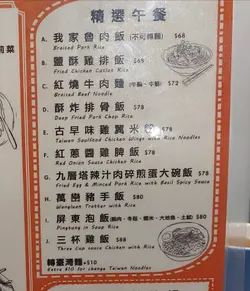 精選午餐
A. 我家魯肉飯(不可轉麵) $68
Braised Pork Rice
B. 鹽酥雞排飯 $78
Fried Chicken Cutlet Rice
C. 紅燒牛肉麵 $72
Braised Beef Noodle
D. 酥炸排骨飯 $78
Deep Fried Pork Chop Rice
E. 古早味雞翼米 $78
Taiwan Soulfood Chicken Wings with Rice Noodles
F. 紅蔥醬雞脾飯 $78
Red Onion Sauce Chicken Rice
G. 九層塔辣汁肉碎煎蛋大碗飯 $78
Fried Egg & Minced Pork Rice with Basil Spicy Sauce
H. 萬巒豬手飯 $80
Wangluan Trotter with Rice
I. 屏東泡飯 $80
Pingtung in Soup Rice
J. 三杯雞飯 $88
Three Cup sauce Chicken with Rice
轉臺灣麵+$10
Extra $10 for change Taiwan Noodles